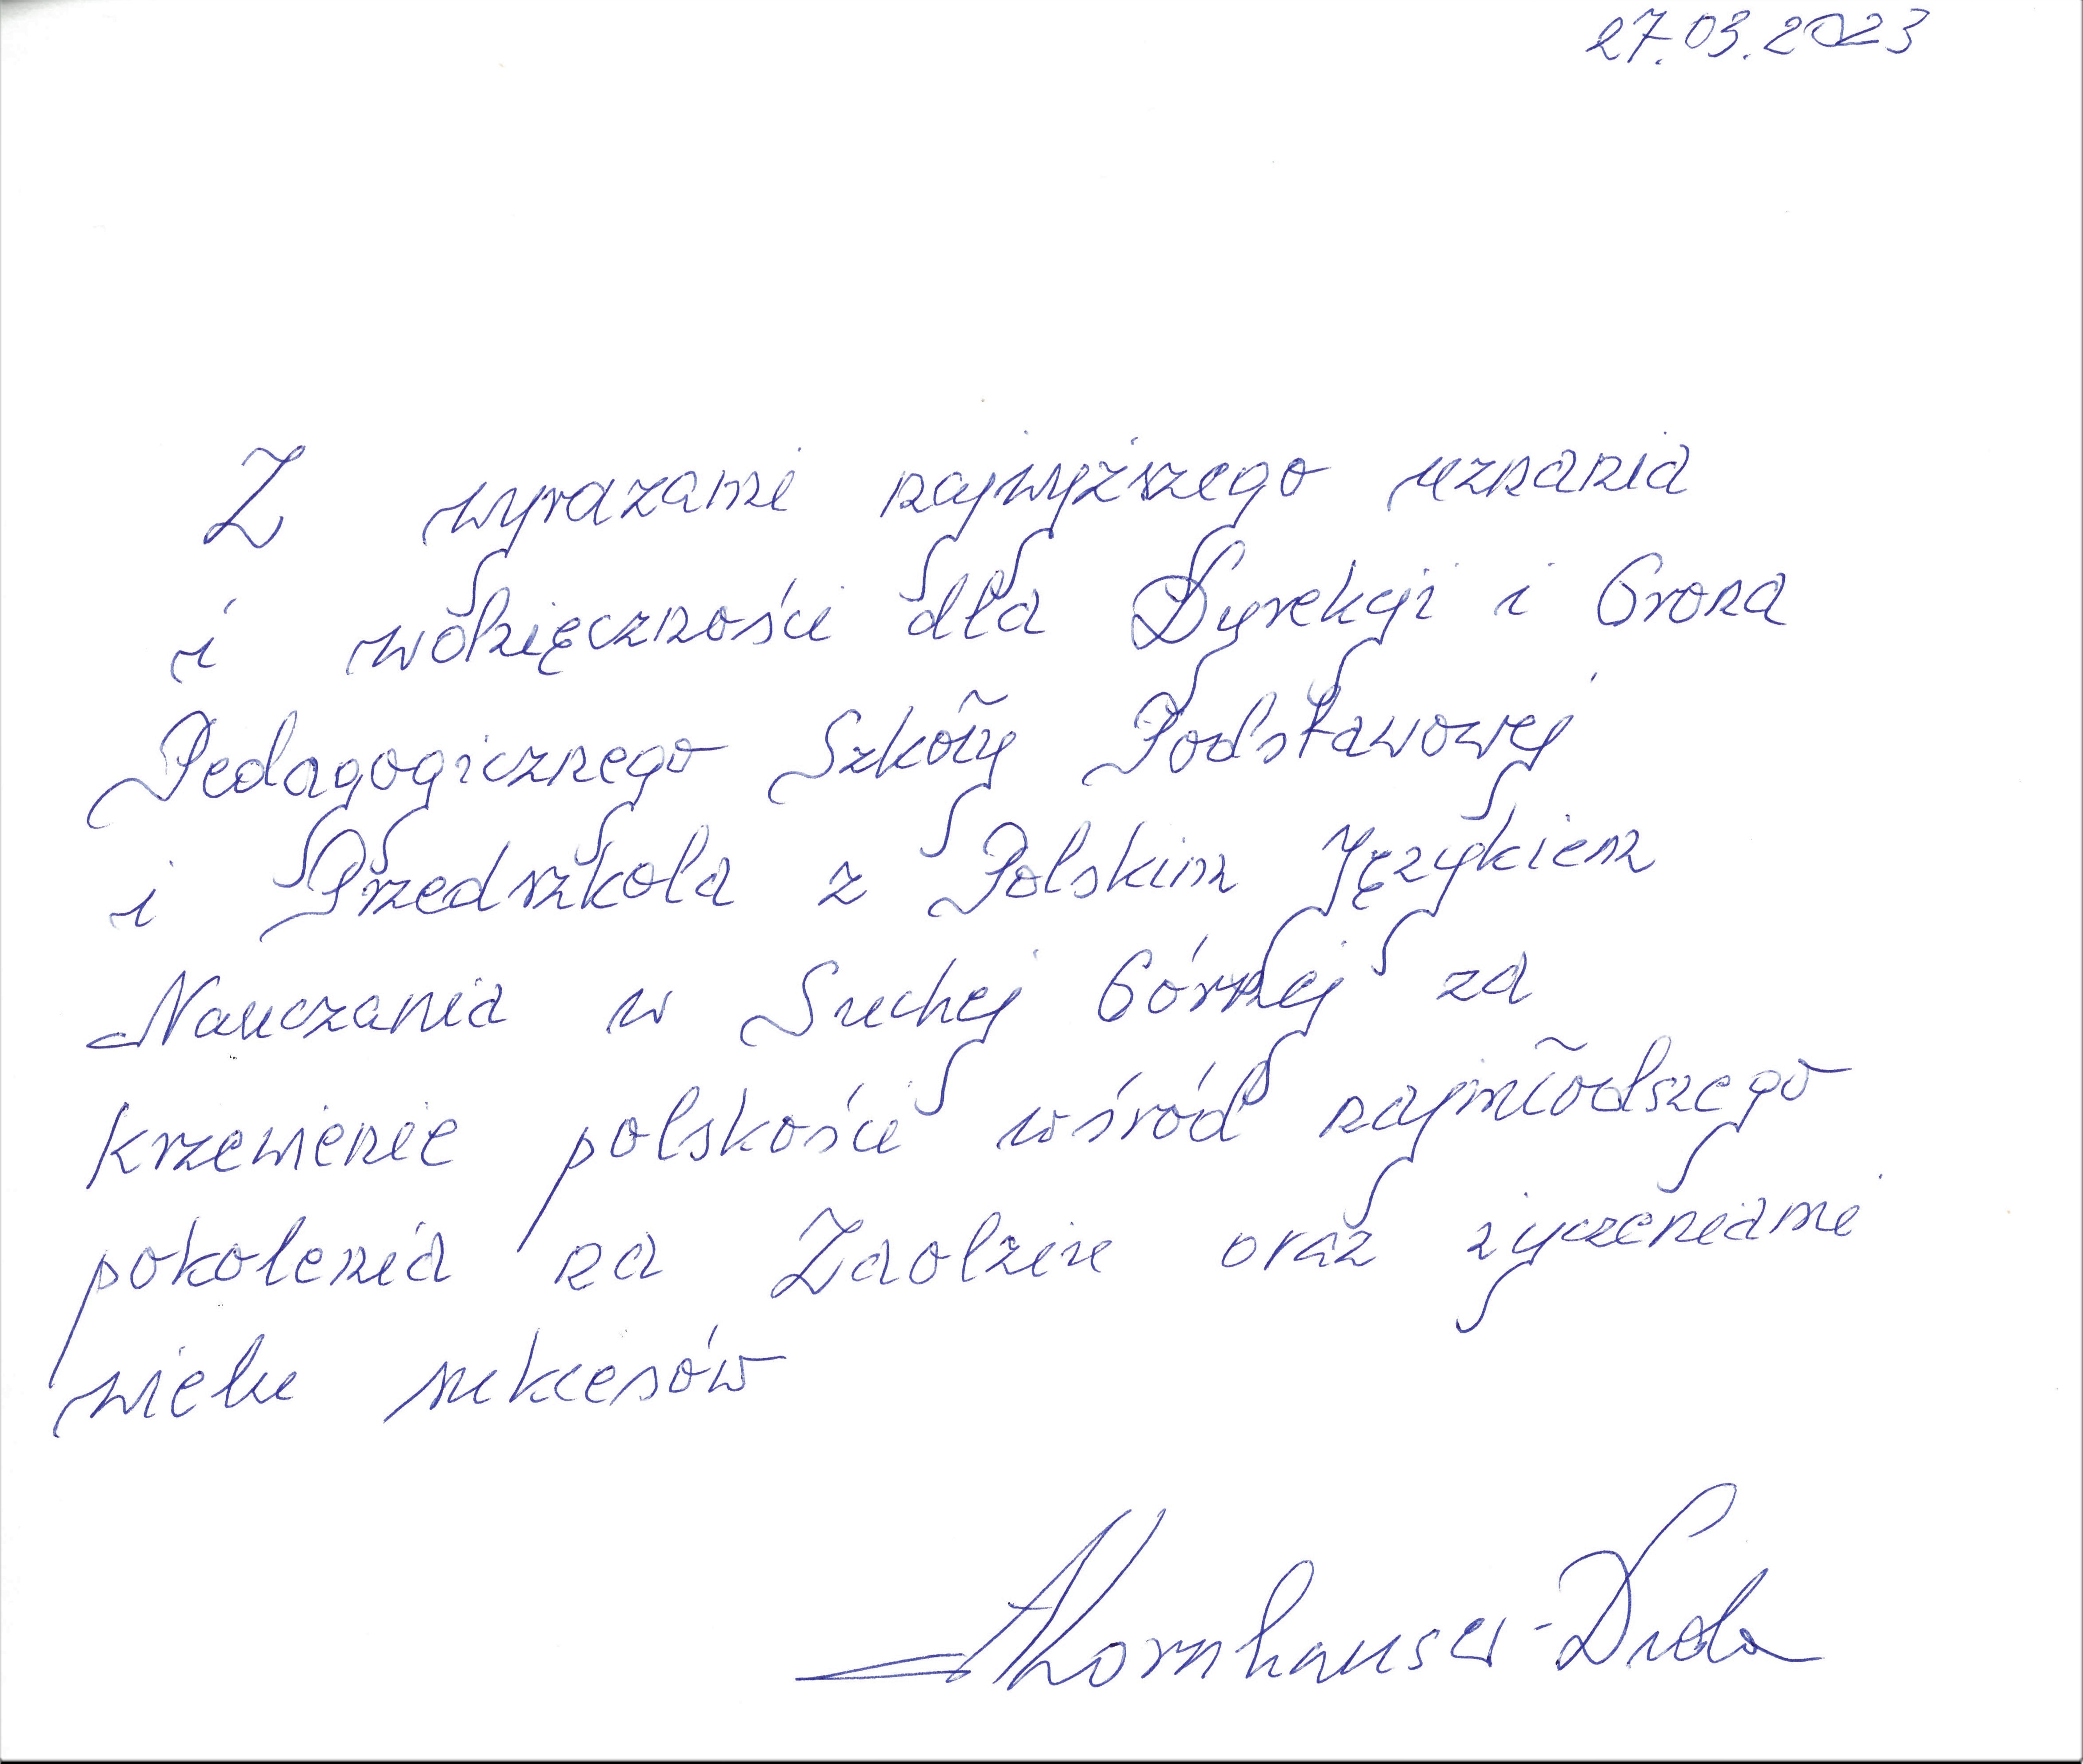 27.03.2023
Z wyrazami najwyższego uznania
i wdzięczności dla Dyrekcji i Grona
Pedagogicznego Szkoły Podstawowej
i Przedszkola z Polskim Językiem
Nauczania w Suchej Górnej za
krzewienie polskości wśród najmłodszego
pokolenia na Zaolziu oraz życzeniami
wielu sukcesów
AKornhauser-Duda